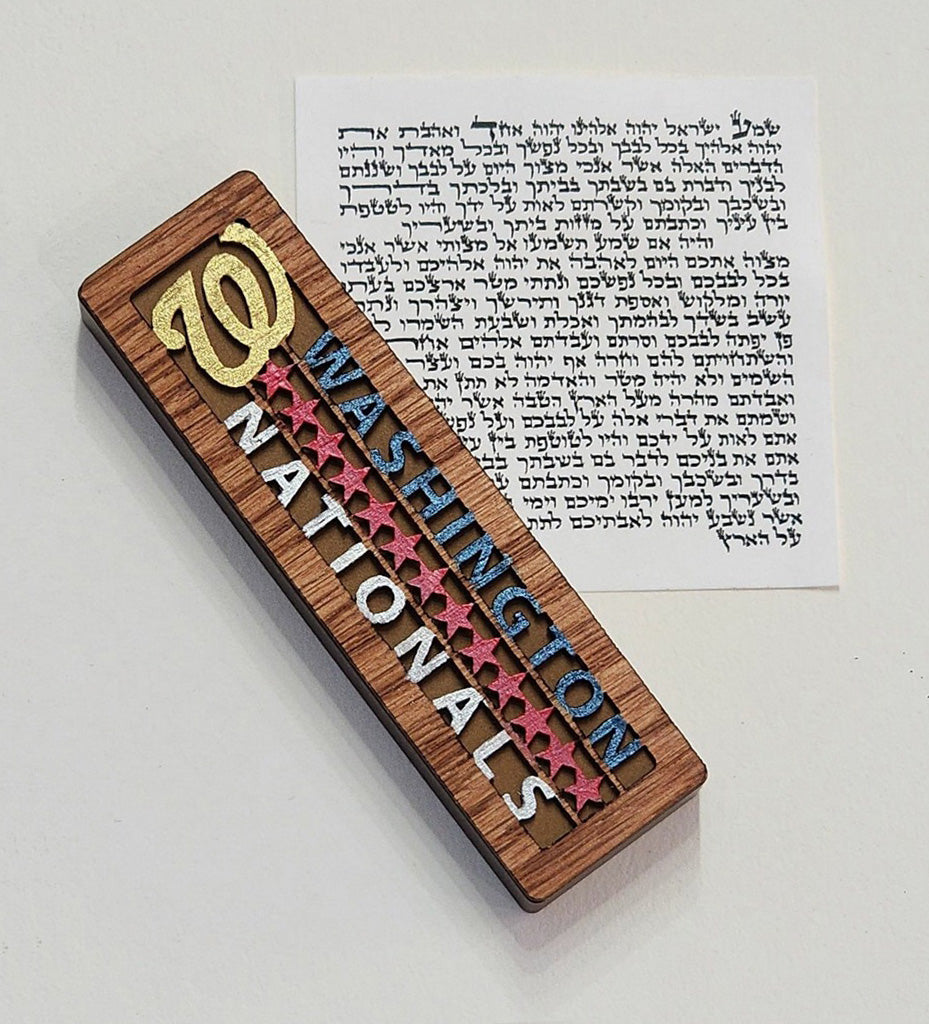 W
WASHINGTON
NATIONALS
שמע ישראל יהוה אלהינו יהוה אחד ואהבת את
יהוה אלהיך בכל לבבך ובכל נפשך ובכל מאדך והיו
הדברים האלה אשר אנכי מצוך היום על לבבך ושננתם
לבניך ודברת בם בשבתך בביתך ובלכתך בדרך
ובשכבך ובקומך וקשרתם לאות על ידך והיו לטטפת
בין עיניך וכתבתם על מזזות ביתך ובשעריך
והיה אם שמע תשמעו אל מצותי אשר אנכי
מצוה אתכם היום לאהבה את יהוה אלהיכם ולעבדו
בכל לבבכם ובכל נפשכם ונתתי מטר ארצכם בעתו
יורה ומלקוש ואספת דגנך ותירשך ויצהרך
עשב בשדך לבהמתך ואכלת ושבעת השמרו
פן יפתה לבבכם וסרתם ועבדתם אלהים
והשתחויתם להם וחרה אף יהוה בכם ועצר
השמים ולא יהיה מטר והאדמה לא תתן את
ואבדתם מהרה מעל הארץ הטבה אשר
ושמתם את דברי אלה על לבבכם ועל
אתם לאות על ידכם והיו לטוטפת בין
אתם את בניכם לדבר בם בשבתך
בדרך ובשכבך ובקומך וכתבתם
ובשעריך למען ירבו ימיכם וימי
אשר נשבע יהוה לאבתיכם לתת
על הארץ